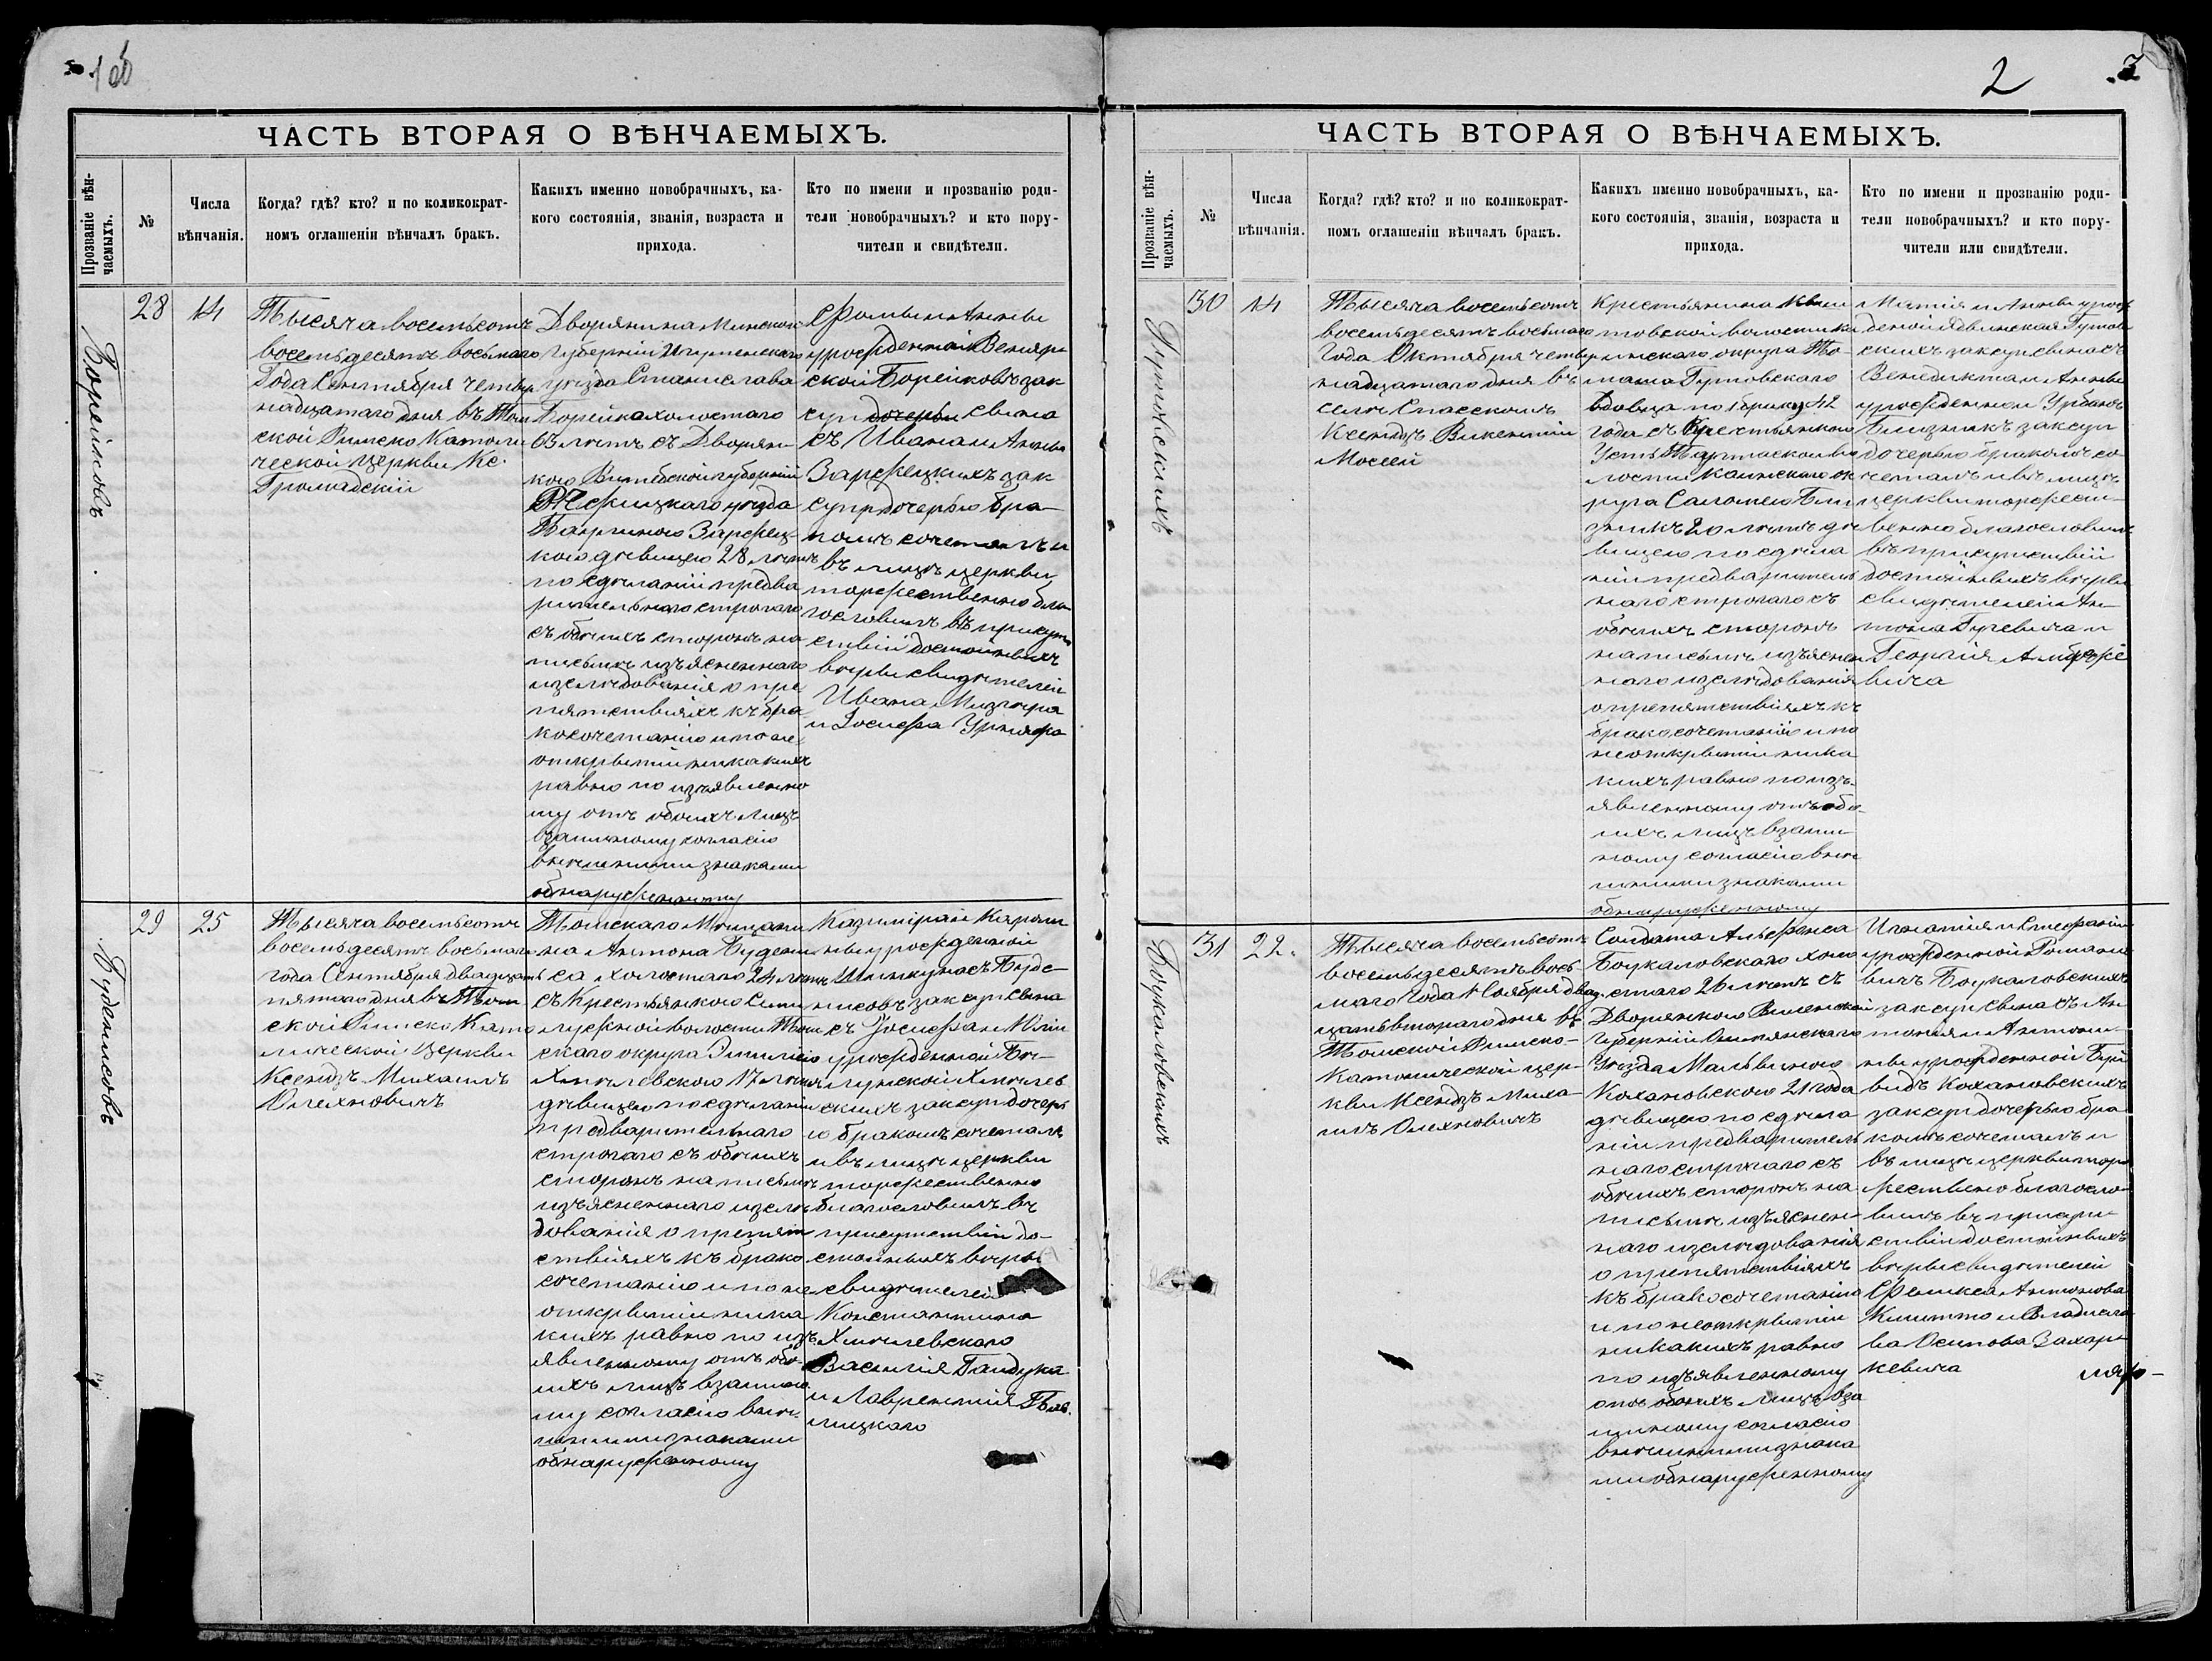 2
3
ЧАСТЬ ВТОРАЯ О ВѢНЧАЕМЫХЪ.
Прозваніе вѣн-
чаемыхъ.
№
Числа
вѣнчанія.
Когда? гдѣ? кто? и по коликократ-
номъ оглашеніи вѣнчалъ бракъ.
Какихъ именно новобрачныхъ, ка-
кого состоянія, званія, возраста и
прихода.
Кто по имени и прозванію роди-
тели новобрачныхъ? и кто пору-
чители и свидѣтели.
28
14
Тысяча восемьсотъ
восемьдесятъ восьмаго
Года Сентября четыр
надцатаго дня въ Том
ской Римско Католи
ческой церкви Кс.
Громадскій
Дворянина Минской
Губерніи Игуменскаго
уѣзда Станислава
Борейка холостаго
лѣтъ съ Дворян-
кою Витебской губерніи
Рѣжицкаго уѣзда
Заржец-
кою дѣвицею 28 лѣтъ
по сдѣланіи предва
рительнаго строгаго
съ обѣихъ сторонъ на
письмѣ изъясненнаго
изслѣдованія о пре
пятствіяхъ къ бра
косочетанію и по не
открытіи никакихъ
равно по изъявленно
му отъ обоихъ лицъ
взаимному согласію
внѣшними знаками
обнаруженному
Фомы и Анны
урожденной
ской Борейковъ зак
суп дочерью сына
съ Иваном и Анны
Заржецкихъ зак
супр дочерью бра-
комъ сочеталъ и
въ лицѣ церкви
торжественно бла-
гословилъ въ присут
ствіи достойныхъ
вѣры свидѣтелей
Ивана Мизгира
и Іосифа
29
25
Тысяча восемьсотъ
восемьдесятъ восьмаго
года Сентября двадцать
пятаго дня въ Том
ской Римско Като
лической церкви
Ксендзъ Михаилъ
Олехновичъ
Томскаго Мѣщани
на Антона Буден
са холостаго 24 лѣтъ
съ Крестьянкою Семи
лужной волости Том
скаго округа Эмиліею
Хмѣлевскою 17 лѣтъ
дѣвицею по сдѣланіи
предварительнаго
строгаго съ обѣихъ
сторонъ на письмѣ
изъясненнаго изслѣ
дованія о препят
ствіяхъ къ брако
сочетанію и по не
открытіи ника
кихъ равно по изъ
явленному отъ обо-
ихъ лицъ взаимно
му согласію внѣ
шними знаками
обнаруженному
Казиміра и Кароли
ны урожденной
Шимкунасъ Буде-
нисовъ зак суп сына
съ Іосифа и Юлии
урожденной
Хмѣлев
скихъ зак суп дочерь
ю бракомъ сочеталъ
и въ лицѣ церкви
торжественно
благословилъ въ
присутствіи до-
стойныхъ вѣры
свидѣтелей
Константина
Хмѣлевскаго
Василія Гайдука
и Лаврентія
лицкаго
Борейковъ
Буденисовъ
ЧАСТЬ ВТОРАЯ О ВѢНЧАЕМЫХЪ.
Прозваніе вѣн-
чаемыхъ.
№
Числа
вѣнчанія.
Когда? гдѣ? кто? и по коликократ-
номъ оглашеніи вѣнчалъ бракъ.
Какихъ именно новобрачныхъ, ка-
кого состоянія, званія, возраста и
прихода.
Кто по имени и прозванію роди-
тели новобрачныхъ? и кто пору-
чители или свидѣтели.
Гутовскихъ
30
14
Тысяча восемьсотъ
восемьдесятъ восьмаго
Года Октября четыр
надцатаго дня въ
селѣ Спасскомъ
Ксендзъ Викентій
Моссей
Крестьянина
товской волости Ка
инскаго округа То-
маша Гутовскаго
вдовца по I браку 42
года съ Крестьянкою
Усть Тартаской во
лости Каинскаго ок
руга Саломеею Бли
знякъ 20 лѣтъ дѣ
вицею по сдѣла
ніи предваритель
наго строгаго съ
обѣихъ сторонъ
на письмѣ изъяснен
наго изслѣдованія
о препятствіяхъ къ
бракосочетанію и по
неоткрытіи ника
кихъ равно по изъ-
явленному отъ обо-
ихъ лицъ взаим-
ному согласію внѣ
шними знаками
обнаруженному
Матія и Анны урож
денной Гутов
скихъ зак суп сына съ
Венедикта и Анны
урожденной Урбанов
Близнякъ зак суп
дочерью бракомъ со
четалъ и въ лицѣ
церкви торжест-
венно благословилъ
въ присутствіи
достойныхъ вѣры
свидѣтелей Ан-
тона Гуревича и
Георгія Амброже
вича
Боукаловскихъ
31
22.
Тысяча восемьсотъ
восемьдесятъ вось
маго Года Ноября двад
цать втораго дня въ
Томской Римско-
Католической цер-
кви Ксендзъ Миха-
илъ Олехновичъ
Солдата Альфонса
Боукаловскаго холо
стаго 26 лѣтъ съ
Дворянкою Виленской
Губерніи Ошмянскаго
Уѣзда Мальвиною
Кохановскою 21 года
дѣвицею по сдѣла
ніи предваритель
наго строгаго съ
обѣихъ сторонъ на
письмѣ изъяснен-
наго изслѣдованія
о препятствіяхъ
къ бракосочетанію
и по неоткрытіи
никакихъ равно
по изъявленному
отъ обоихъ лицъ вза
имному согласію
внѣшними знака
ми обнаруженному
Игнатія и Стефаніи
урожденной Романо
вичъ Боукаловскихъ
зак суп сына съ Ан
тонія и Антони-
ны урожденной
видъ Кохановскихъ
зак суп дочерью бра
комъ сочеталъ и
въ лицѣ церкви тор
жественно благосло
вилъ въ присут-
ствіи достойныхъ
вѣры свидѣтелей
Феликса Антонова
и Владисла
ва Осипова Захар
кевича